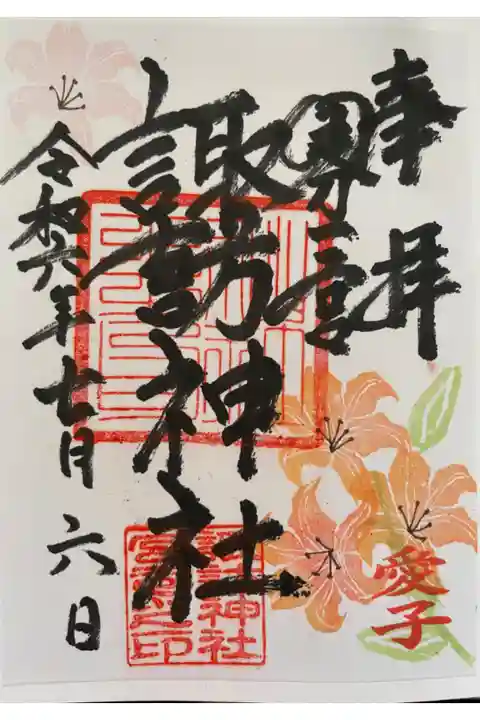 奉拝
諏訪神社
令和六年七月六日
愛子
諏訪神社
宮司之印